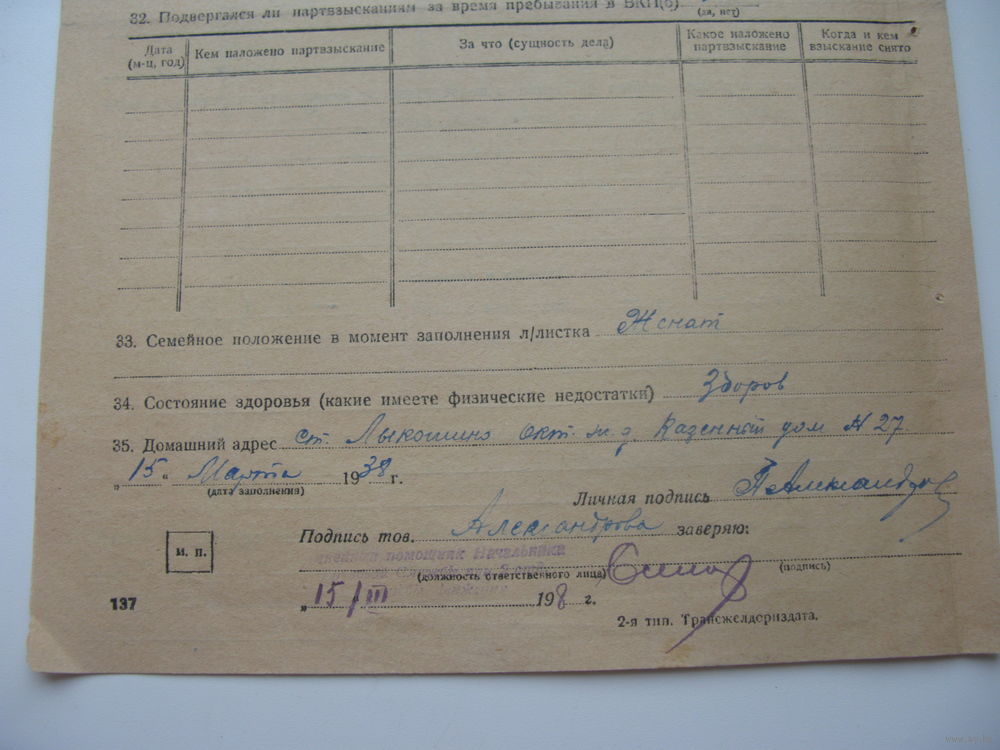 32. Подвергался ли партвзысканиям за время пребывания в ВКП(б)
(да, нет)
Дата (м-ц, год) Кем наложено партвзыскание За что (сущность дела) Какое наложено партвзыскание Когда и кем взыскание снято
33. Семейное положение в момент заполнения л/листка Женат
34. Состояние здоровья (какие имеете физические недостатки) Здоров
35. Домашний адрес ст. Лыкошино Окт. ж. д. Казенный дом № 27
„15“ Марта 1938 г.
(дата заполнения)
Личная подпись ПАлександров
Подпись тов. Александрова заверяю:
помощник Начальника
и. п.
(должность ответственного лица) (подпись)
„15/III 198 г.
137
2-я тип. Трансжелдориздата.